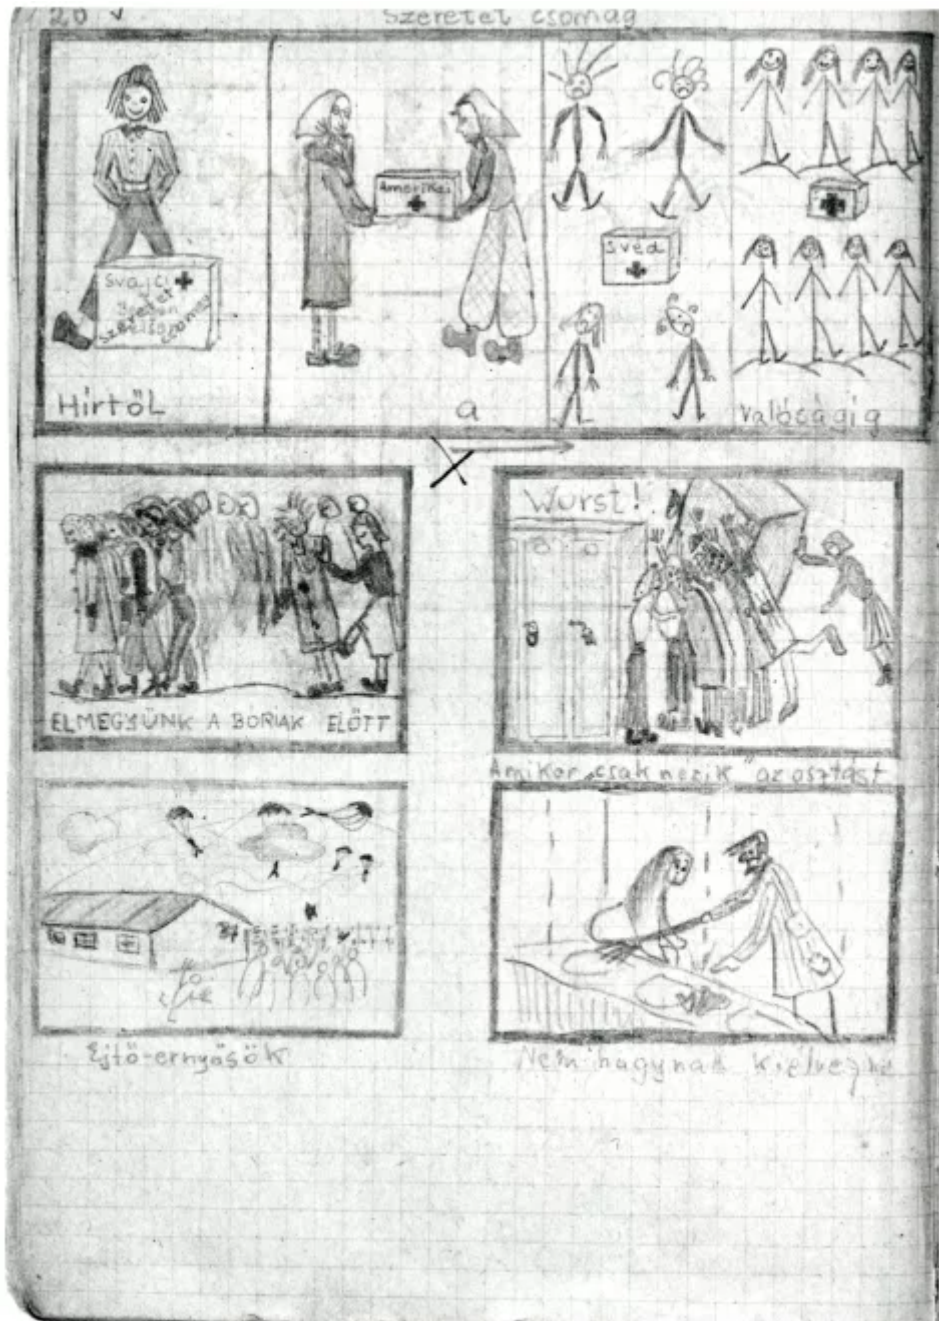 20
Szeretet csomag
Svájci
szeretet
csomag
Amerikai
Svéd
Hirtől
a
Valóságig
ELMEGYÜNK A BORIAK ELŐTT
Wurst!
Amikor „csak nézik" az osztást
Ejtő-ernyősök
Nem hagynak kiélvezni